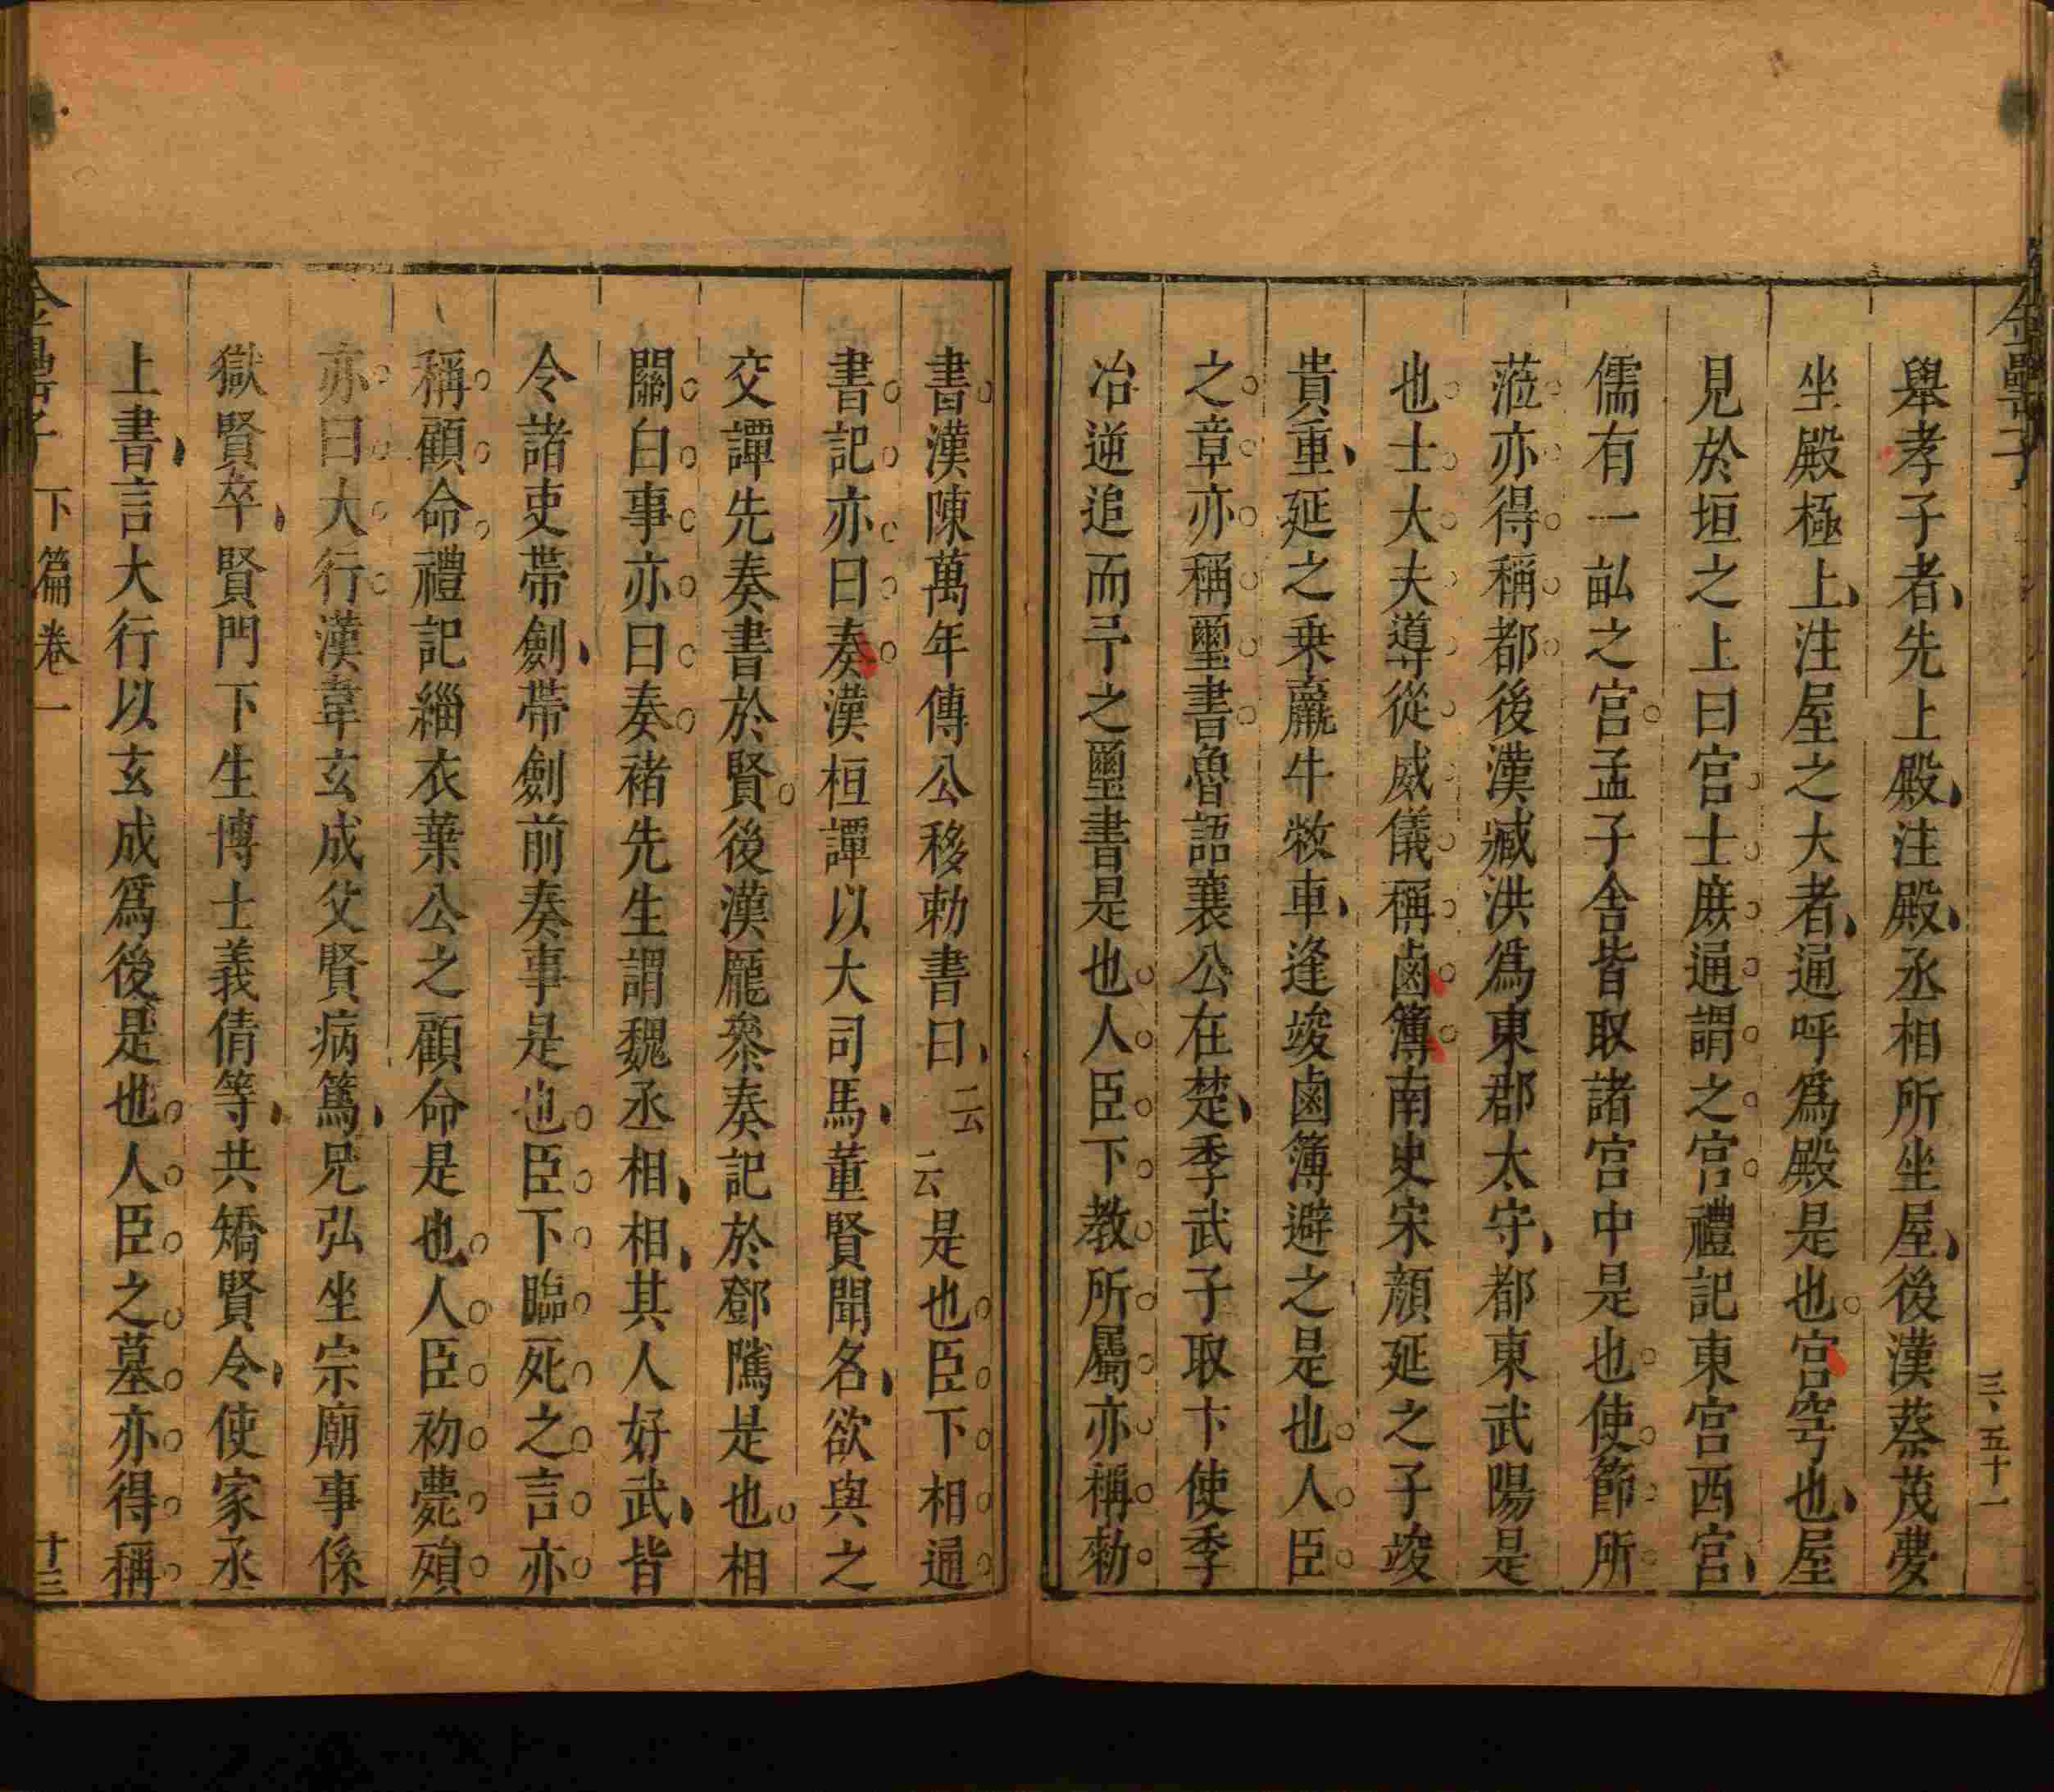 舉孝子者先上殿注殿丞相所坐屋後漢蔡茂夢
坐殿極上注屋之大者通呼爲殿是也宫穹也屋
見於垣之上曰宫士庶通謂之宫禮記東宫西宫
儒有一畆之宫孟子舍皆取諸宫中是也使節所
蒞亦得稱都後漢臧洪爲東郡太守都東武陽是
也士大夫導從威儀稱鹵簿南史宋顔延之子竣
貴重延之乗羸牛敝車逢竣鹵簿避之是也人臣
之章亦稱璽書魯語襄公在楚季武子取卞使季
冶逆追而予之璽書是也人臣下教所屬亦稱勑
書漢陳萬年傳公移勅書曰云云是也臣下相通
書記亦曰奏漢桓譚以大司馬董賢聞名欲與之
交譚先奏書於賢後漢龐參奏記於鄧隲是也相
關白事亦曰奏褚先生謂魏丞相相其人好武皆
令諸吏帯劍帶劍前奏事是也臣下臨死之言亦
稱顧命禮記緇衣葉公之顧命是也人臣初薨殯
亦曰大行漢韋玄成父賢病篤兄弘坐宗廟事係
獄賢卒賢門下生博士義倩等共矯賢令使家丞
上書言大行以玄成爲後是也人臣之墓亦得稱
下篇卷一
十三